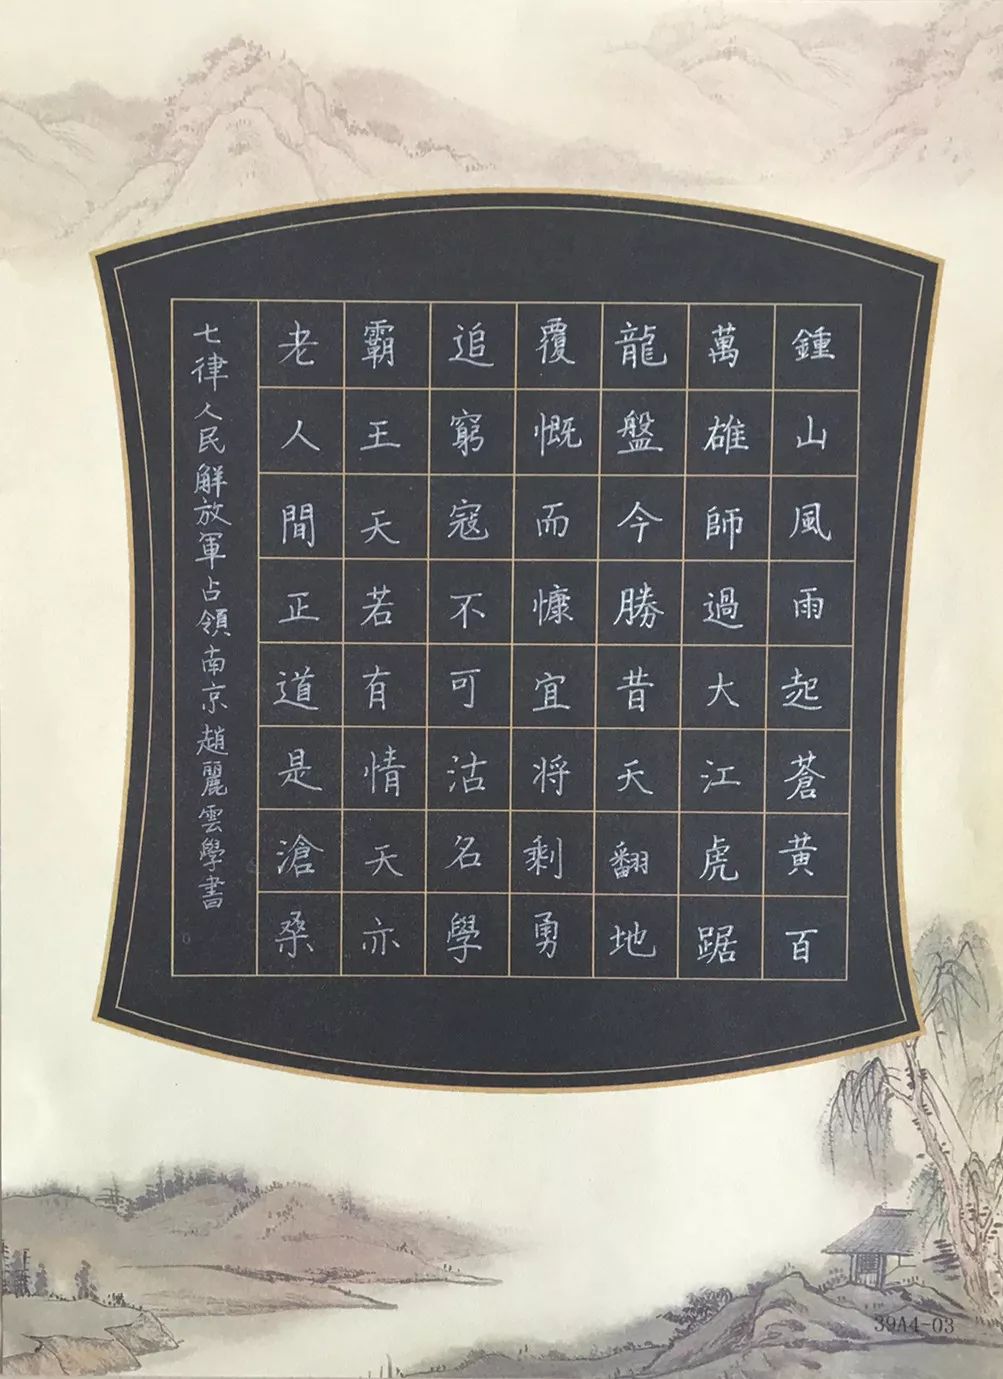 鍾山風雨起蒼黃百
萬雄師過大江虎踞
龍盤今勝昔天翻地
覆慨而慷宜将剩勇
追窮寇不可沽名學
霸王天若有情天亦
老人間正道是滄桑
七律人民解放軍占領南京趙麗雲學書
39A4-03